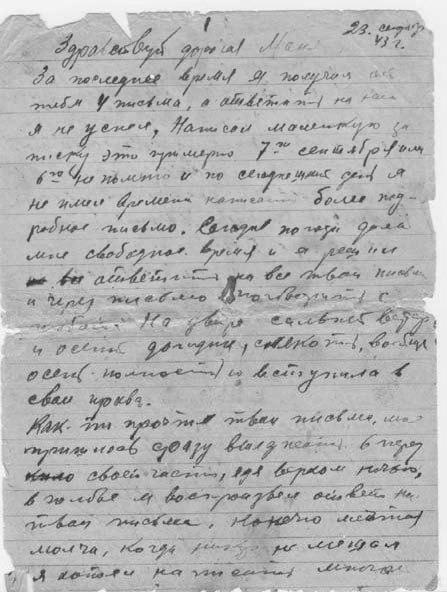 23. сентябр
43 г.
Здравствуй дорогая Ман
За последнее время я получил от
тебя 4 письма, а ответить на них
я не успел, Написал маленькую за
писку это примерно 7го сентября или
6го не помню и по сегодняшний день я
не имел времени написать более под-
робное письмо. Сегодня погода дала
мне свободное время и я решил
ответить на все твои письма
и через письмо поговорить с
тобой. На дворе сильный ветер
и осень дождик, вообще
осень полностью вступила в
свои права.
Как ти прочтя твои письма, мне
пришлось сразу выезжать вперед
своей части, едя верхом ночью,
в голове я воспроизвел ответ на
твои письма, конечно мечтая
молча, когда никто не мешал
я хотел написать много